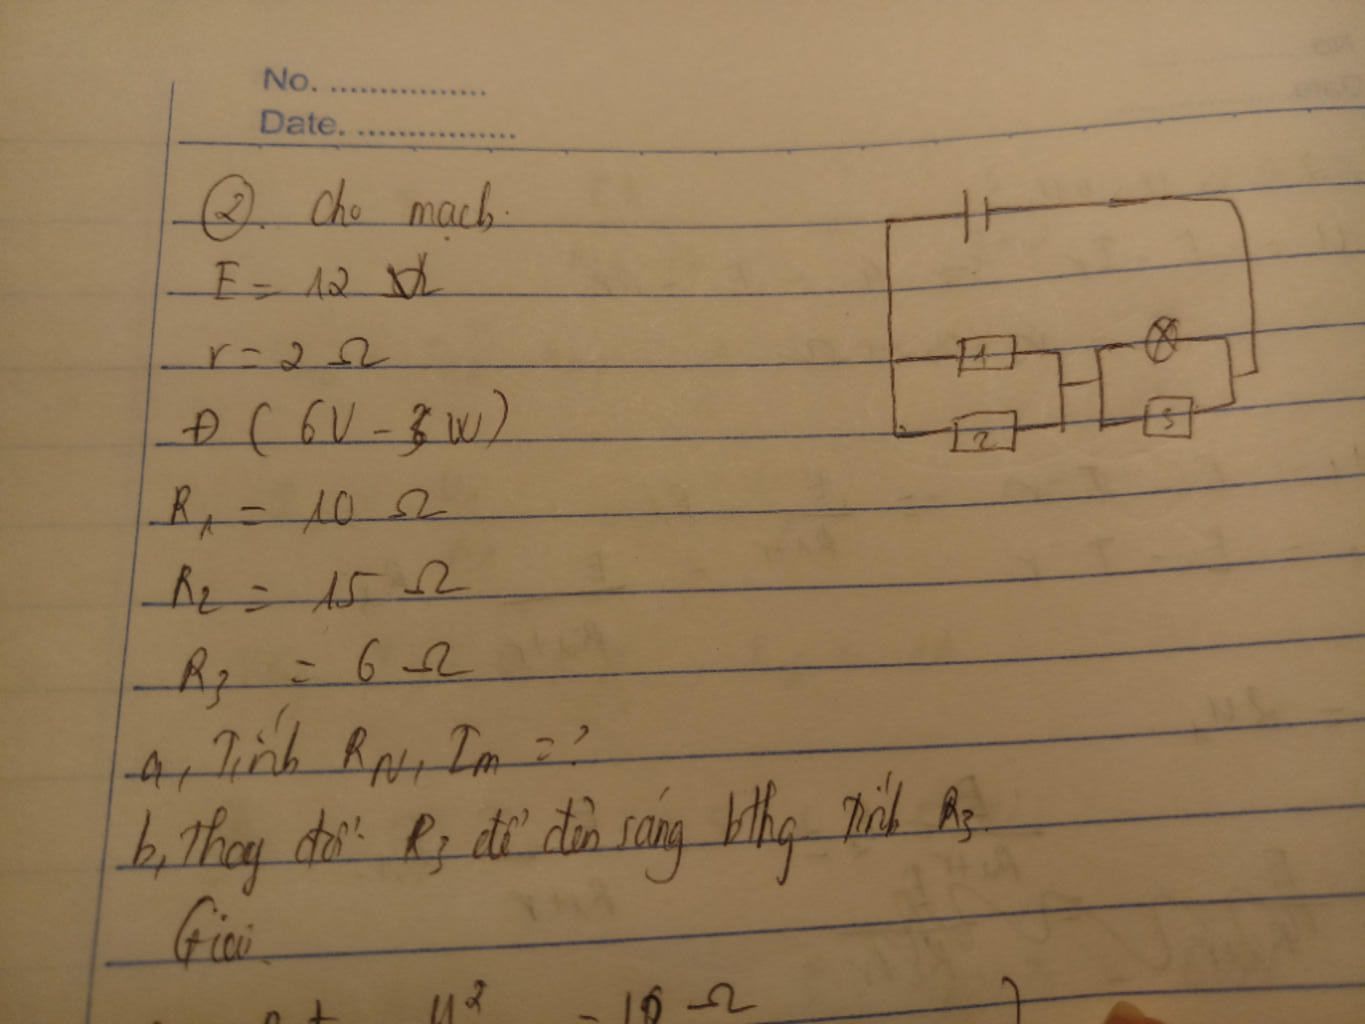 No. ................
Date. ................
②. Cho mạch.
E = 12
r = 2 Ω
Đ ( 6V - W)
R₁ = 10 Ω
R₂ = 15 Ω
R₃ = 6 Ω
a, Tính R_N, I_m = ?
b, Thay đổi R₃ để đèn sáng bthg tính R₃.
Giải
U² = Ω
1
2
3